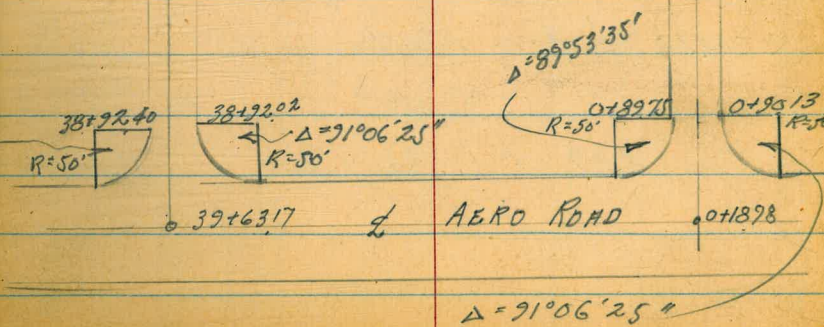 Δ=89°53'35'
38+92.40
38+92.02
0+8975
0+9013
Δ=91°06'25"
R=50'
R=50'
R=50'
R=50
39+63.17
℄ AERO ROAD
0+1898
Δ=91°06'25"